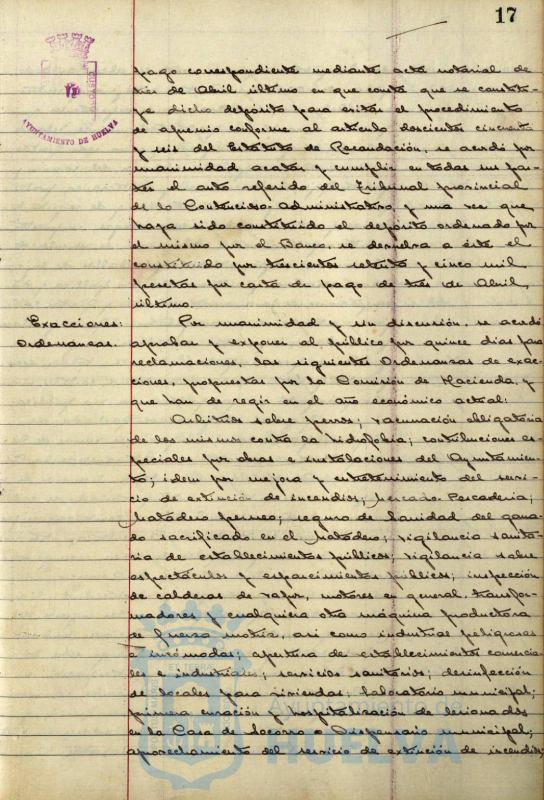 17
AYUNTAMIENTO DE HUELVA
pago correspondiente mediante acta notarial de
tres de Abril último en que consta que se constitu-
ye dicho depósito para evitar el procedimiento
de apremio conforme al artículo doscientos cincuenta
y seis del Estatuto de Recaudación, se acordó por
unanimidad acatar y cumplir en todas sus par-
tes el auto referido del Tribunal provincial
de lo Contencioso-Administrativo, y una vez que
haya sido constituido el depósito ordenado por
el mismo por el Banco, se devuelva a éste el
constituido por trescientas setenta y cinco mil
pesetas por carta de pago de tres de Abril,
último.
Exacciones:
Ordenanzas.
Por unanimidad y sin discusión, se acordó
aprobar y exponer al público por quince días para
reclamaciones, las siguientes Ordenanzas de exac-
ciones, propuestas por la Comisión de Hacienda, y
que han de regir en el año económico actual:
Arbitrios sobre perros; vacunación obligatoria
de los mismos contra la hidrofobia; contribuciones es-
peciales por obras e instalaciones del Ayuntamien-
to; idem por mejora y entretenimiento del servi-
cio de extinción de incendios; Mercado-Pescadería;
Matadero; seguro de Sanidad del gana-
do sacrificado en el Matadero; vigilancia sanita-
ria de establecimientos públicos; vigilancia sobre
espectáculos y esparcimientos públicos; inspección
de calderas de vapor, motores en general, transfor-
madores y cualquiera otra máquina productora
de fuerza motriz, así como industrias peligrosas
e incómodas; apertura de establecimientos comercia-
les e industriales; servicios sanitarios; desinfección
de locales para viviendas; laboratorio municipal;
primera curación y hospitalización de lesionados
en la Casa de Socorro o Dispensario municipal;
aprovechamiento del servicio de extinción de incendios;
Ayuntamiento de
HUELVA